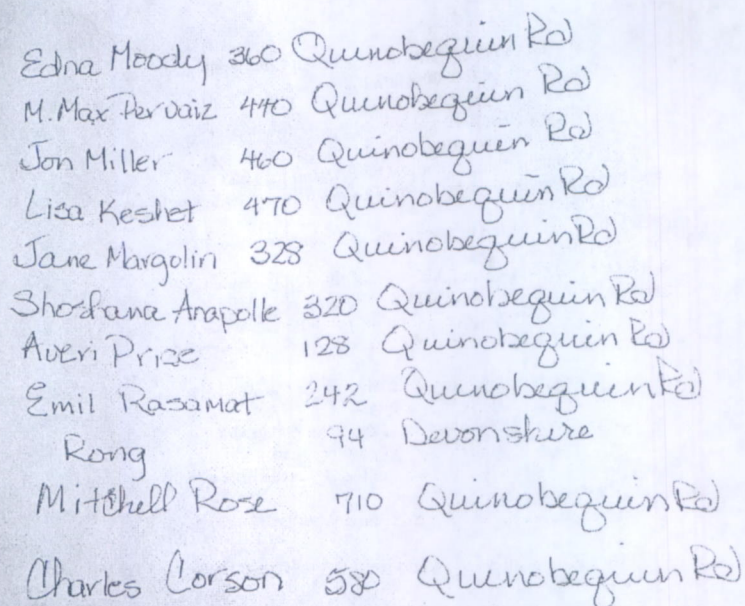 Edna Moody 360 Quinobequin Rd
M. Max Pervaiz 440 Quinobequin Rd
Jon Miller 460 Quinobequin Rd
Lisa Keshet 470 Quinobequin Rd
Jane Margolin 328 Quinobequin Rd
Shoshana Anapolle 320 Quinobequin Rd
Averi Price 128 Quinobequin Rd
Emil Rasamat 242 Quinobequin Rd
Rong 94 Devonshire
Mitchell Rose 710 Quinobequin Rd
Charles Corson 580 Quinobequin Rd